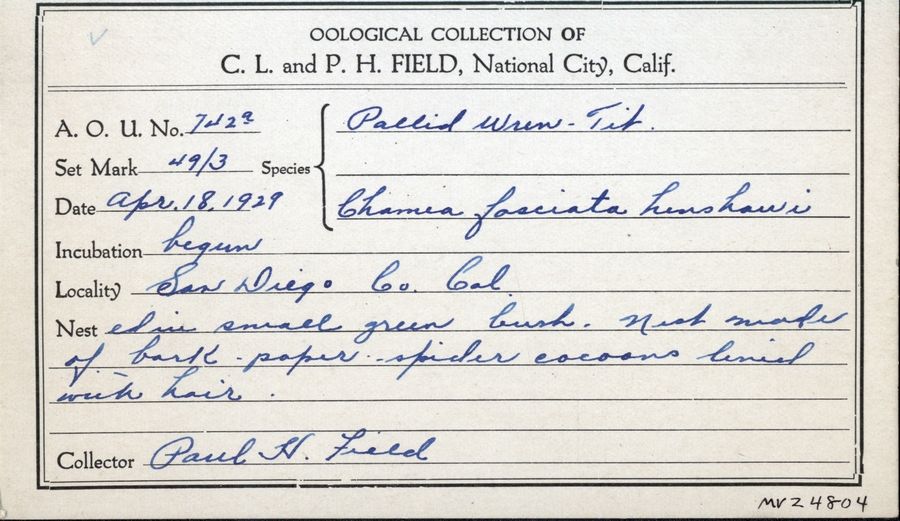 OOLOGICAL COLLECTION OF
C. L. and P. H. FIELD, National City, Calif.
A. O. U. No. 742a
Pallid Wren-Tit.
Set Mark 49/3 Species
Date Apr. 18, 1929
Chamea fasciata henshawi
Incubation begun
Locality San Diego Co. Cal.
Nest ed in small green bush. Nest made
of bark - paper - spider cocoons lined
with hair.
Collector Paul H. Field
MVZ 4804